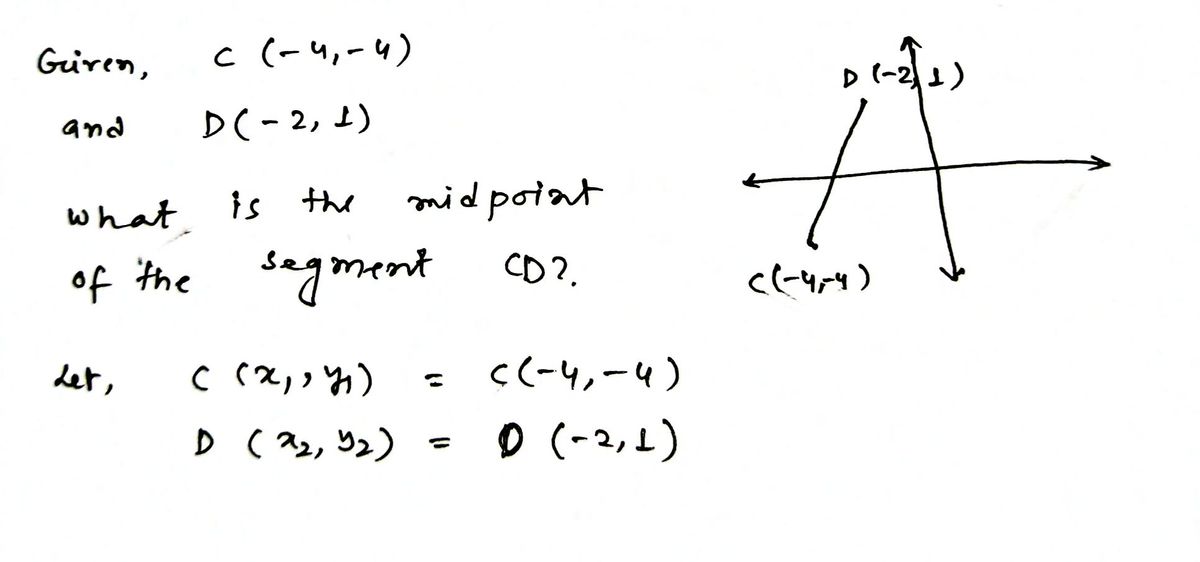 Given, C (-4,-4)
and D(-2, 1)
what is the midpoint
of the segment CD?.
Let, C (x₁, y₁) = C(-4,-4)
D (x₂, y₂) = D (-2,1)
D (-2, 1)
C(-4,-4)